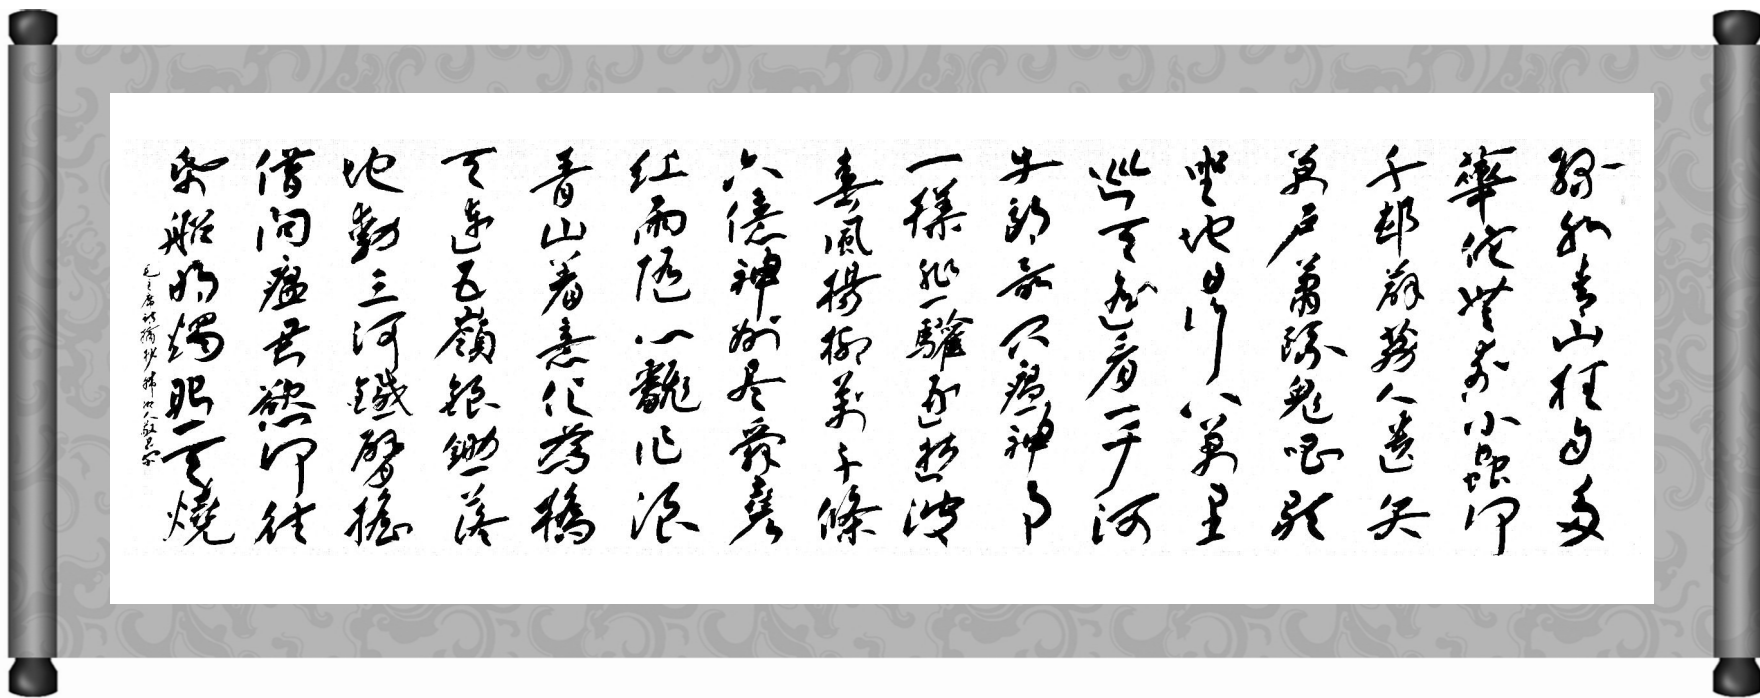 綠水青山枉自多
華佗無奈小蟲何
千邨薜荔人遺矢
萬戶蕭疏鬼唱歌
坐地日行八萬里
巡天遙看一千河
牛郎欲問瘟神事
一樣悲驩逐逝波
春風楊柳萬千條
六億神州盡舜堯
紅雨隨心飜作浪
青山着意化為橋
天連五嶺銀鋤落
地動三河鐵臂搖
借問瘟君慾何往
紙船明燭照天燒
毛主席詩摘抄